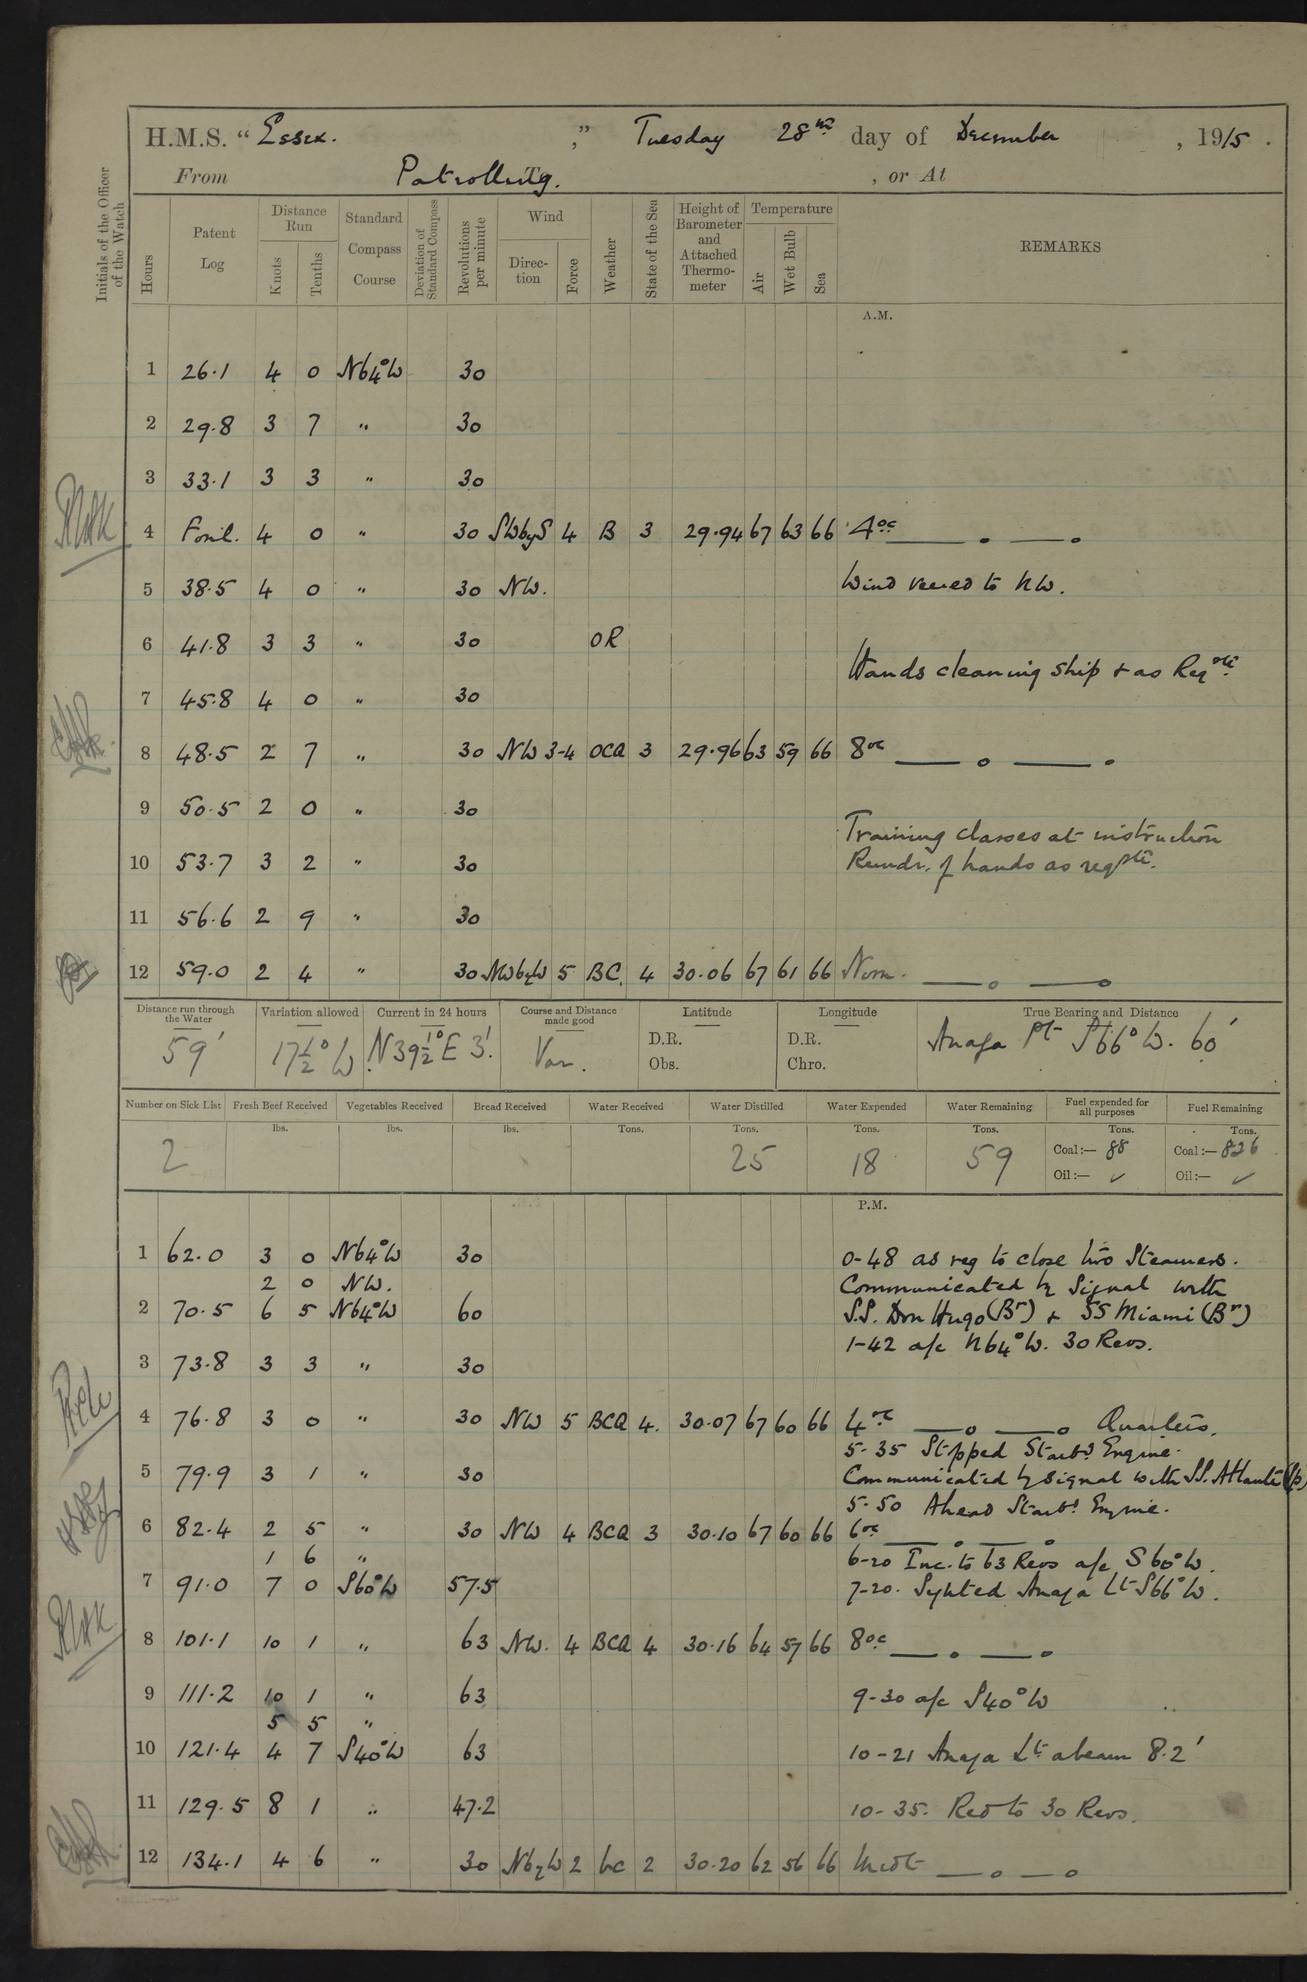 H.M.S. “ Essex. ,” Tuesday 28th day of December , 1915 .
From Patrolling. To , or At
Initials of the Officer of the Watch
Hours
Patent Log
Distance Run
Knots
Tenths
Standard Compass Course
Deviation of Standard Compass
Revolutions per minute
Wind
Direction
Force
Weather
State of the Sea
Height of Barometer and Attached Thermometer
Temperature
Air
Wet Bulb
Sea
REMARKS
A.M.
1 26.1 4 0 N64°W 30
2 29.8 3 7 " 30
3 33.1 3 3 " 30
4 4 0 " 30 SWbyS 4 B 3 29.94 67 63 66 4oc
5 38.5 4 0 " 30 NW. Wind veered to NW.
6 41.8 3 3 " 30 OR
Hands cleaning ship + as Reqte.
7 45.8 4 0 " 30
8 48.5 2 7 " 30 NW 3-4 OCQ 3 29.96 63 59 66 8oc
9 50.5 2 0 " 30
Training classes at instruction
10 53.7 3 2 " 30 Remdr. of hands as reqste.
11 56.6 2 9 " 30
12 59.0 2 4 " 30 NWbyW 5 BC. 4 30.06 67 61 66 Noon.
Distance run through the Water
59'
Variation allowed
17½° W
Current in 24 hours
N39½°E 3'.
Course and Distance made good
Var.
Latitude
D.R.
Obs.
Longitude
D.R.
Chro.
True Bearing and Distance
Anaga Pt S66°W. 60'
Number on Sick List
2
Fresh Beef Received
lbs.
Vegetables Received
lbs.
Bread Received
lbs.
Water Received
Tons.
Water Distilled
Tons.
25
Water Expended
Tons.
18
Water Remaining
Tons.
59
Fuel expended for all purposes
Tons.
Coal:— 88
Oil:— ✓
Fuel Remaining
Tons.
Coal:— 826
Oil:— ✓
P.M.
1 62.0 3 0 N64°W 30 0-48 as req to close two Steamers.
2 0 NW. Communicated by Signal with
2 70.5 6 5 N64°W 60 S.S. Don Hugo (Br) + SS Miami (Br)
1-42 a/c N64°W. 30 Revs.
3 73.8 3 3 " 30
4 76.8 3 0 " 30 NW 5 BCQ 4. 30.07 67 60 66 4oc Quarters.
5-35 Stopped Starbd Engine.
5 79.9 3 1 " 30 Communicated by signal with SS. Atlante (Sp)
5-50 Ahead Starbd Engine.
6 82.4 2 5 " 30 NW 4 BCQ 3 30.10 67 60 66 6oc
1 6 " 6-20 Inc. to 63 Revs a/c S60°W.
7 91.0 7 0 S60°W 57.5 7-20. Sighted Anaga Lt S66°W.
8 101.1 10 1 " 63 NW. 4 BCQ 4 30.16 64 57 66 8oc
9 111.2 10 1 " 63 9-30 a/c S40°W
5 5 "
10 121.4 4 7 S40°W 63 10-21 Anaga Lt abeam 8.2'
11 129.5 8 1 " 47.2 10-35. Red to 30 Revs.
12 134.1 4 6 " 30 NbyW 2 bc 2 30.20 62 56 66 Midt